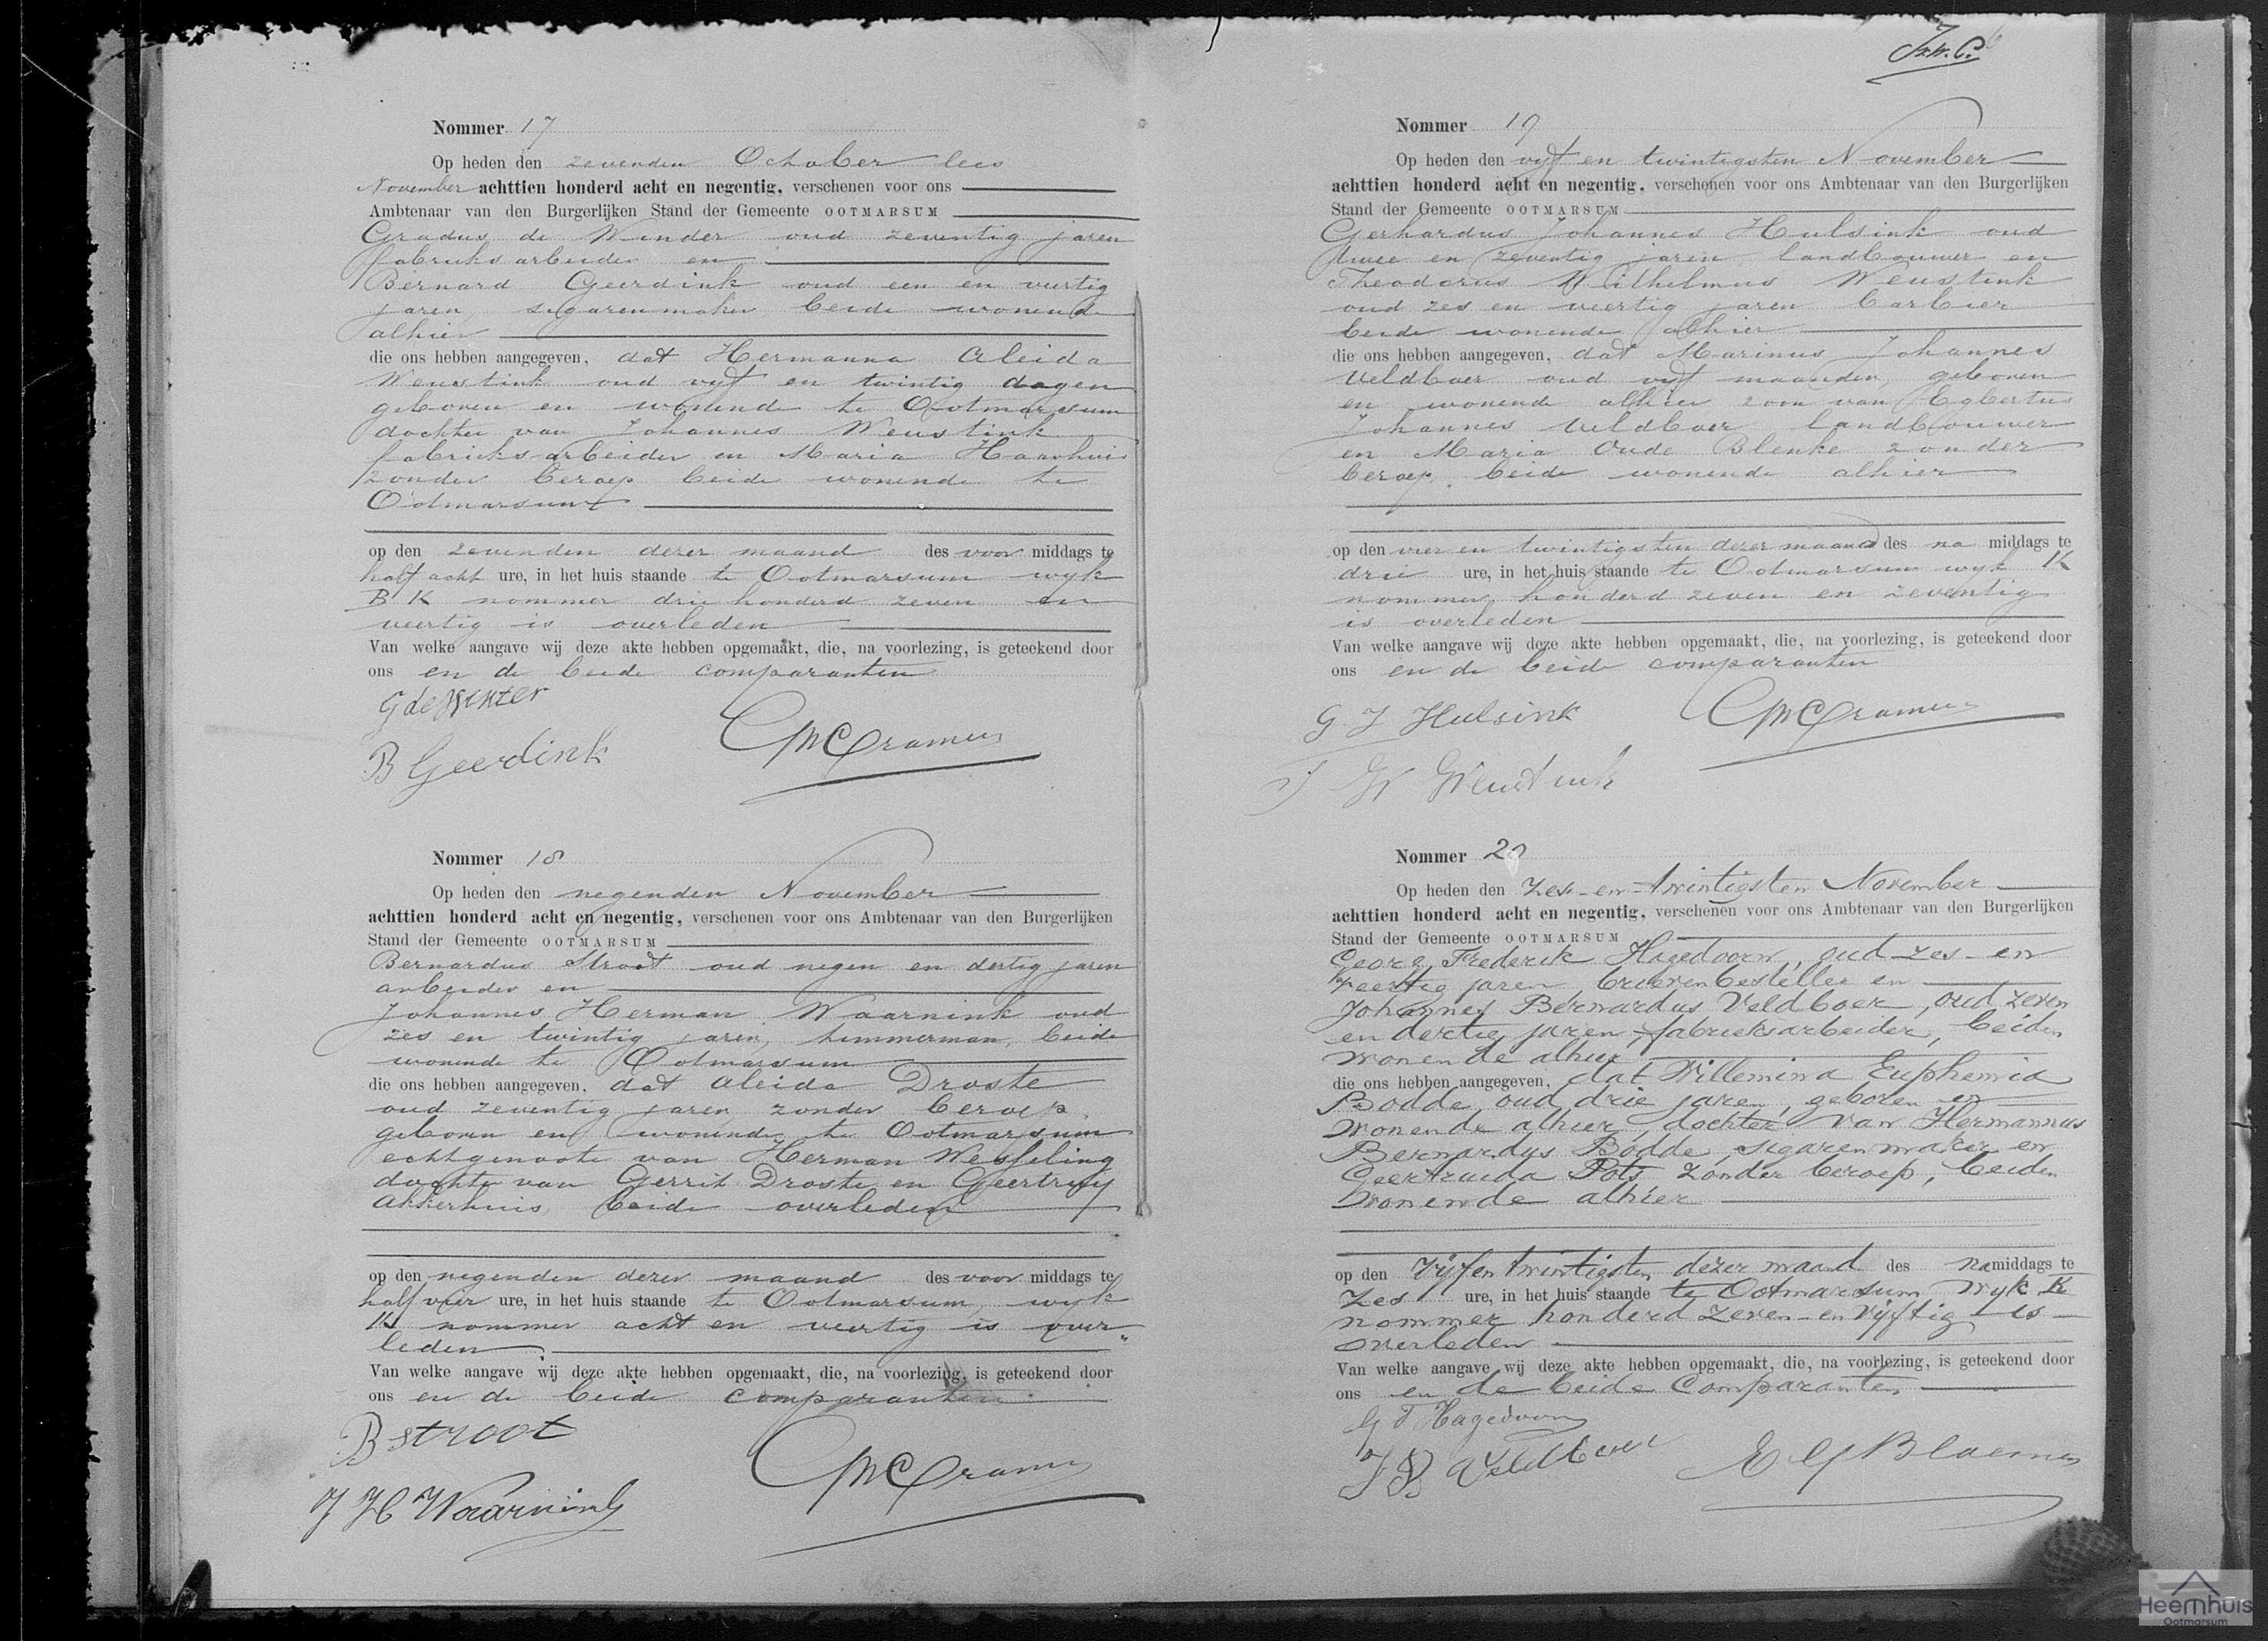 Nommer 17
Op heden den zevenden October lees
November achttien honderd acht en negentig, verschenen voor ons
Ambtenaar van den Burgerlijken Stand der Gemeente OOTMARSUM
Gradus de Winder oud zeventig jaren
fabrieksarbeider en
Bernard Geerdink oud een en veertig
jaren, sigarenmaker beide wonende
alhier
die ons hebben aangegeven, dat Hermanna Aleida
Weustink oud vijf en twintig dagen
geboren en wonende te Ootmarsum
dochter van Johannes Weustink
fabrieksarbeider en Maria Haarhuis
zonder beroep beide wonende te
Ootmarsum
op den zevenden dezer maand des voor middags te
half acht ure, in het huis staande te Ootmarsum wijk
B K nommer drie honderd zeven en
veertig is overleden
Van welke aangave wij deze akte hebben opgemaakt, die, na voorlezing, is geteekend door
ons en de beide comparanten
G de Winter
B Geerdink
Cramer
Nommer 18
Op heden den negenden November
achttien honderd acht en negentig, verschenen voor ons Ambtenaar van den Burgerlijken
Stand der Gemeente OOTMARSUM
Bernardus Stroot oud negen en dertig jaren
arbeider en
Johannes Herman Waarnink oud
zes en twintig jaren, timmerman, beide
wonende te Ootmarsum
die ons hebben aangegeven, dat Aleida Droste
oud zeventig jaren zonder beroep,
geboren en wonende te Ootmarsum
echtgenoote van Herman Wesseling
dochter van Gerrit Droste en Geertruy
Akkerhuis, beide overleden
op den negenden dezer maand des voor middags te
half vier ure, in het huis staande te Ootmarsum, wijk
K nommer acht en veertig is over"
leden
Van welke aangave wij deze akte hebben opgemaakt, die, na voorlezing, is geteekend door
ons en de beide comparanten
B Stroot
J H Waarnink
Cramer
Nommer 19
Op heden den vijf en twintigsten November
achttien honderd acht en negentig, verschenen voor ons Ambtenaar van den Burgerlijken
Stand der Gemeente OOTMARSUM
Gerhardus Johannes Hulsink oud
twee en zeventig jaren landbouwer en
Theodorus Wilhelmus Weustink
oud zes en veertig jaren barbier
beide wonende alhier
die ons hebben aangegeven, dat Marinus Johannes
Veldboer oud vijf maanden, geboren
en wonende alhier zoon van Egbertus
Johannes Veldboer landbouwer
en Maria Oude Blenke zonder
beroep, beide wonende alhier
op den vier en twintigsten dezer maand des na middags te
drie ure, in het huis staande te Ootmarsum wijk K
nommer honderd zeven en zeventig
is overleden
Van welke aangave wij deze akte hebben opgemaakt, die, na voorlezing, is geteekend door
ons en de beide comparanten
G. J Hulsink
W Weustink
Cramer
Nommer 20
Op heden den zes-en-twintigsten November
achttien honderd acht en negentig, verschenen voor ons Ambtenaar van den Burgerlijken
Stand der Gemeente OOTMARSUM
Georg Frederik Hagedoorn, oud zes-en
veertig jaren brievenbesteller en
Johannes Bernardus Veldboer, oud zeven
en dertig jaren, fabrieksarbeider, beiden
wonende alhier
die ons hebben aangegeven, dat Willemina Euphemia
Bodde oud drie jaren, geboren en
wonende alhier, dochter van Hermannus
Bernardus Bodde, sigarenmaker en
Geertruida Pots, zonder beroep, beiden
wonende alhier
op den Vijfentwintigsten dezer maand des namiddags te
zes ure, in het huis staande te Ootmarsum Wijk K
nommer honderd zeven-en vijftig is
overleden
Van welke aangave wij deze akte hebben opgemaakt, die, na voorlezing, is geteekend door
ons en de beide Comparanten
G F Hagedoorn
J B Veldboer
Heemhuis
Ootmarsum